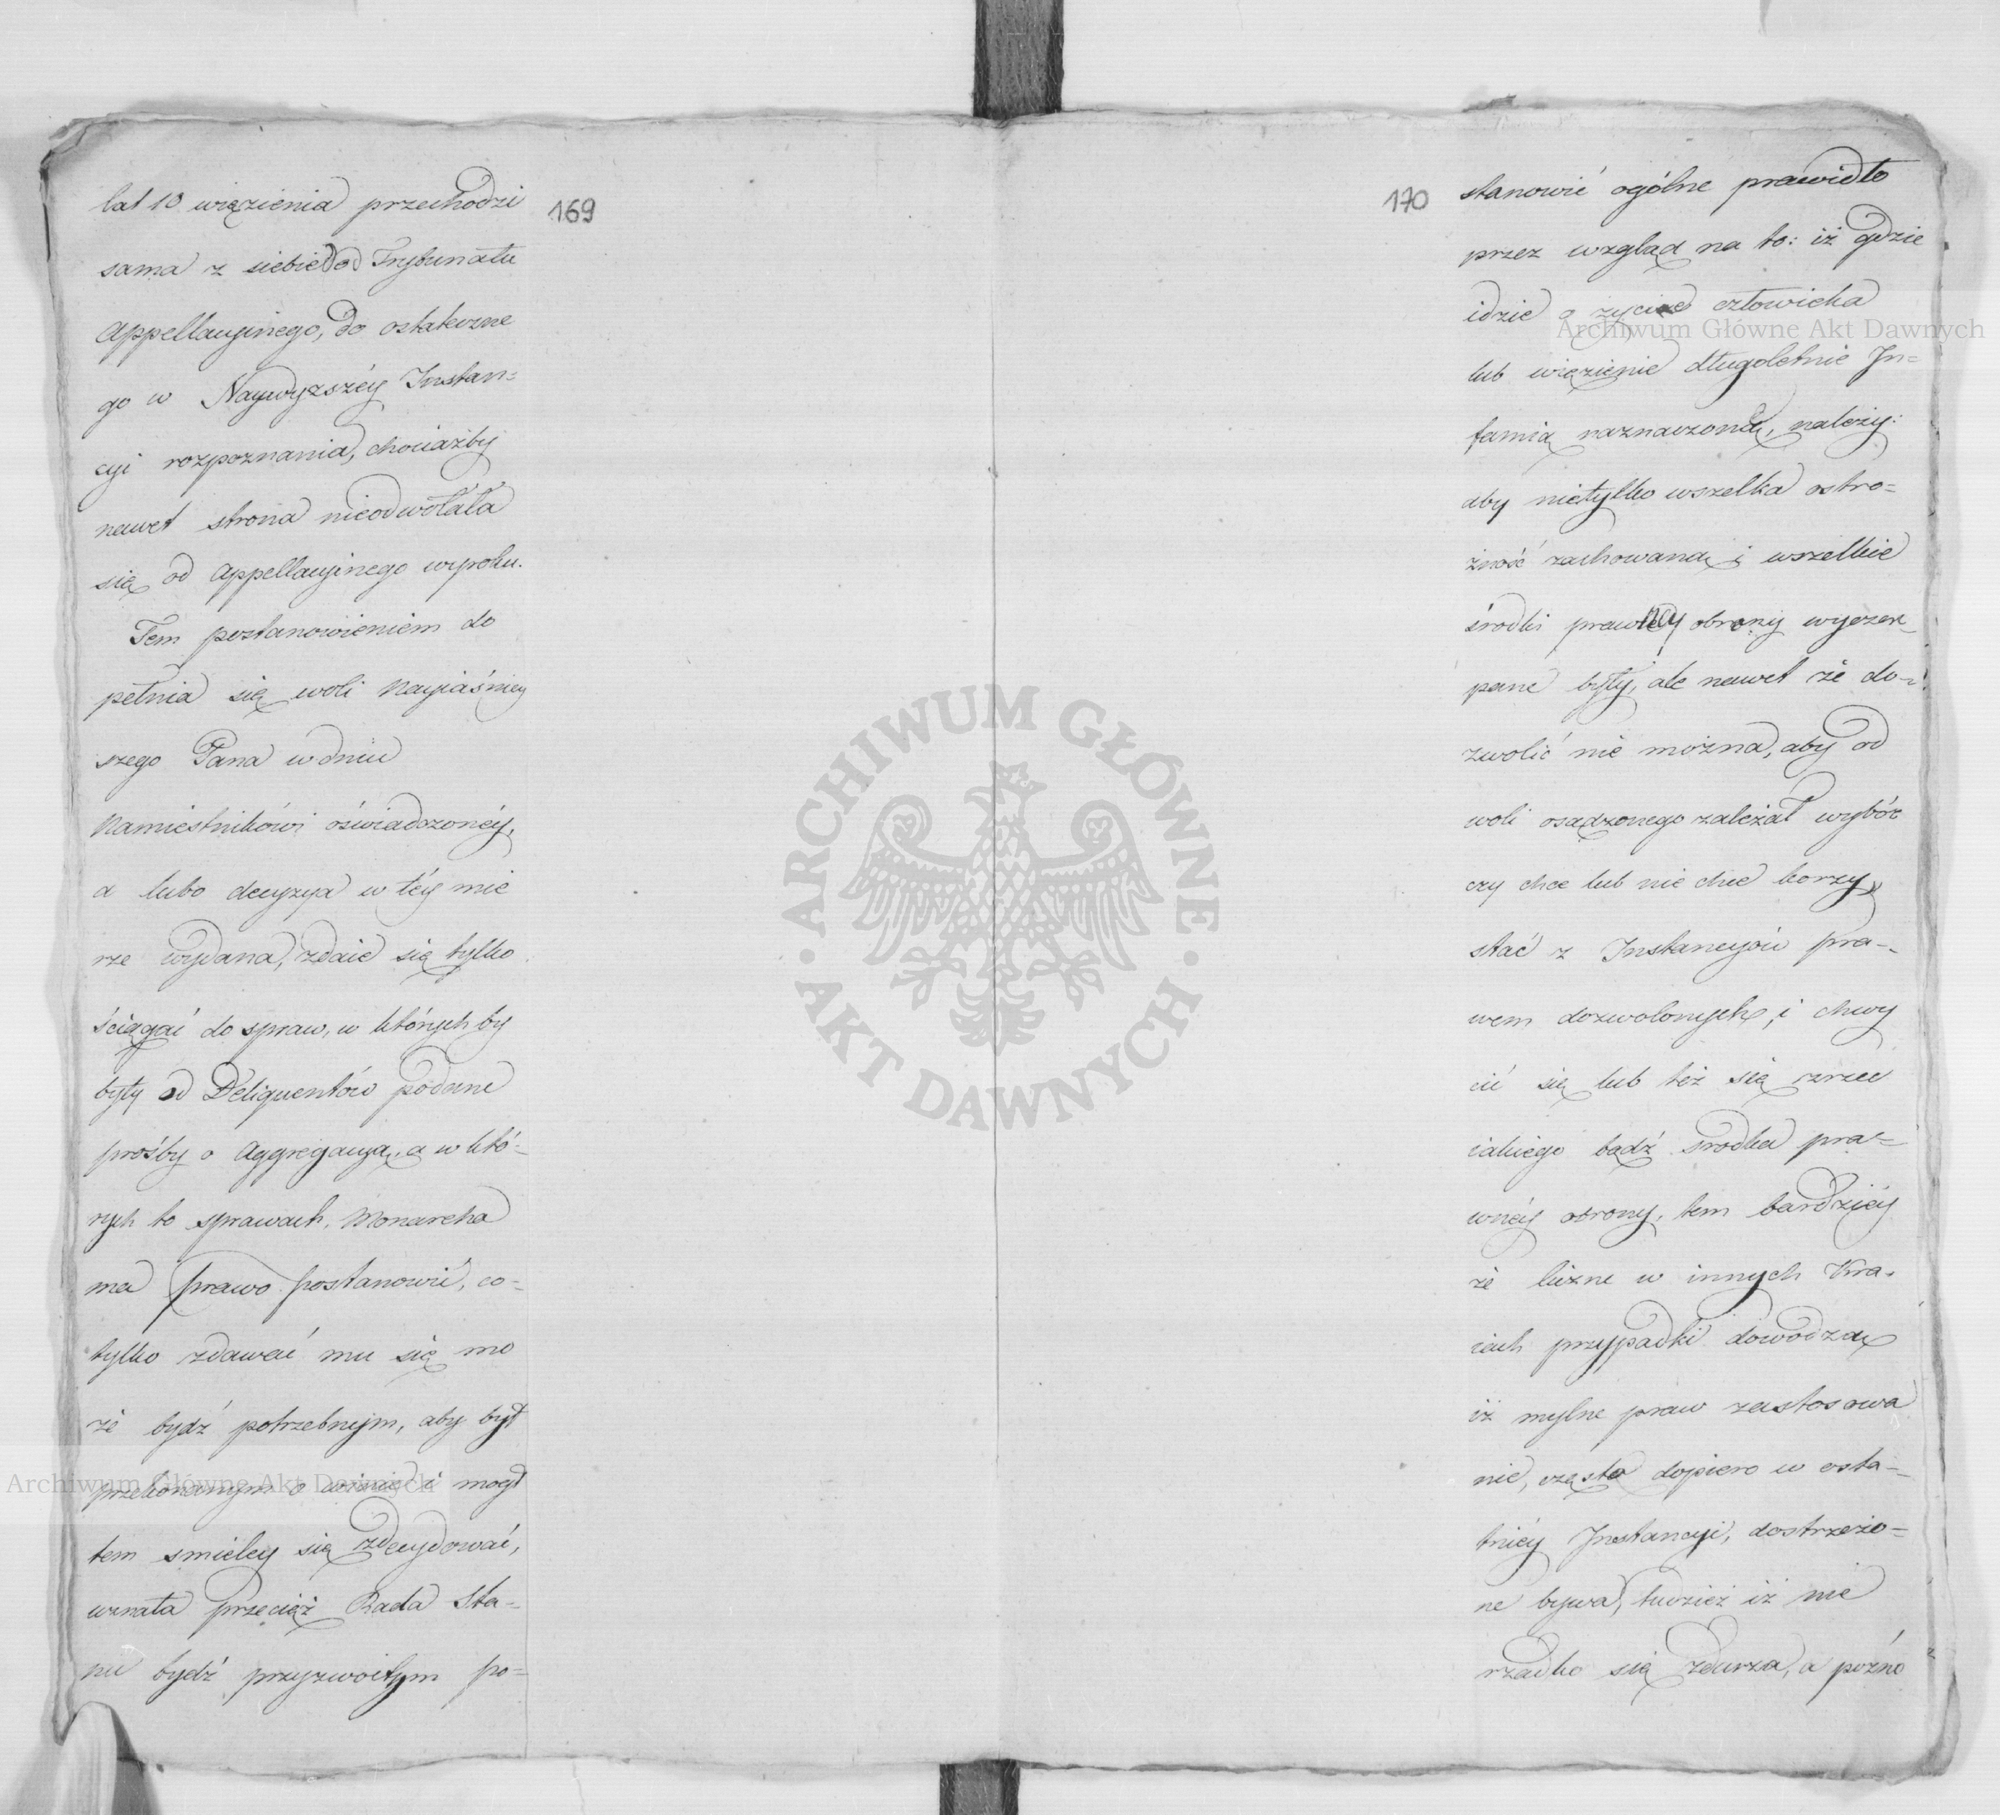 169
lat 10 więzienia przechodzi
sama z siebie od Trybunału
Appellacyinego, do ostateczne
go w Naywyższéy Instan=
cyi rozpoznania, chociażby
nawet strona nieodwołała
się od Appellacyinego wyroku.
Tem postanowieniem do
pełnia się woli Nayiaśniey
szego Pana w dniu
Namiestnikówi oświadczonéy,
a lubo decyzya w téy mie
rze wydana, zdaie się tylko
ściągać do spraw, w których by
były od Deliquentów podane
prośby o Aggregacyą, a w któ-
rych to sprawach, Monarcha
ma prawo postanowić, co-
tylko zdawać mu się mo
że bydź potrzebnym, aby był
przekonanym o winie i mógł
tem smieley się zdecydować,
uznała przecież Rada Sta-
nu bydź przyzwoitym po-
170
stanowić ogólne prawidło
przez wzgląd na to: iż gdzie
idzie o życie człowieka
lub więzienie długoletnie In=
famią naznaczone, należy:
aby nietylko wszelka ostro=
żność zachowaną i wszelkie
środki prawney obrony wyczer-
pane były, ale nawet że do-
zwolić nie można, aby od
woli osądzonego zależał wybór
czy chce lub nie chce korzy
stać z Instancyów pra-
wem dozwolonych, i chwy
cić się lub też się zrzec
iakiego bądź środka pra-
wnéy obrony, tem bardziéy
że liczne w innych Kra-
iach przypadki dowodzą
iż mylne praw zastosowa
nie, często dopiero w osta-
tniéy Instancyi, dostrzeżo-
ne bywa, tudzież iż nie
rzadko się zdarza, a pózno
Archiwum Główne Akt Dawnych
Archiwum Główne Akt Dawnych
ARCHIWUM GŁÓWNE · AKT DAWNYCH ·